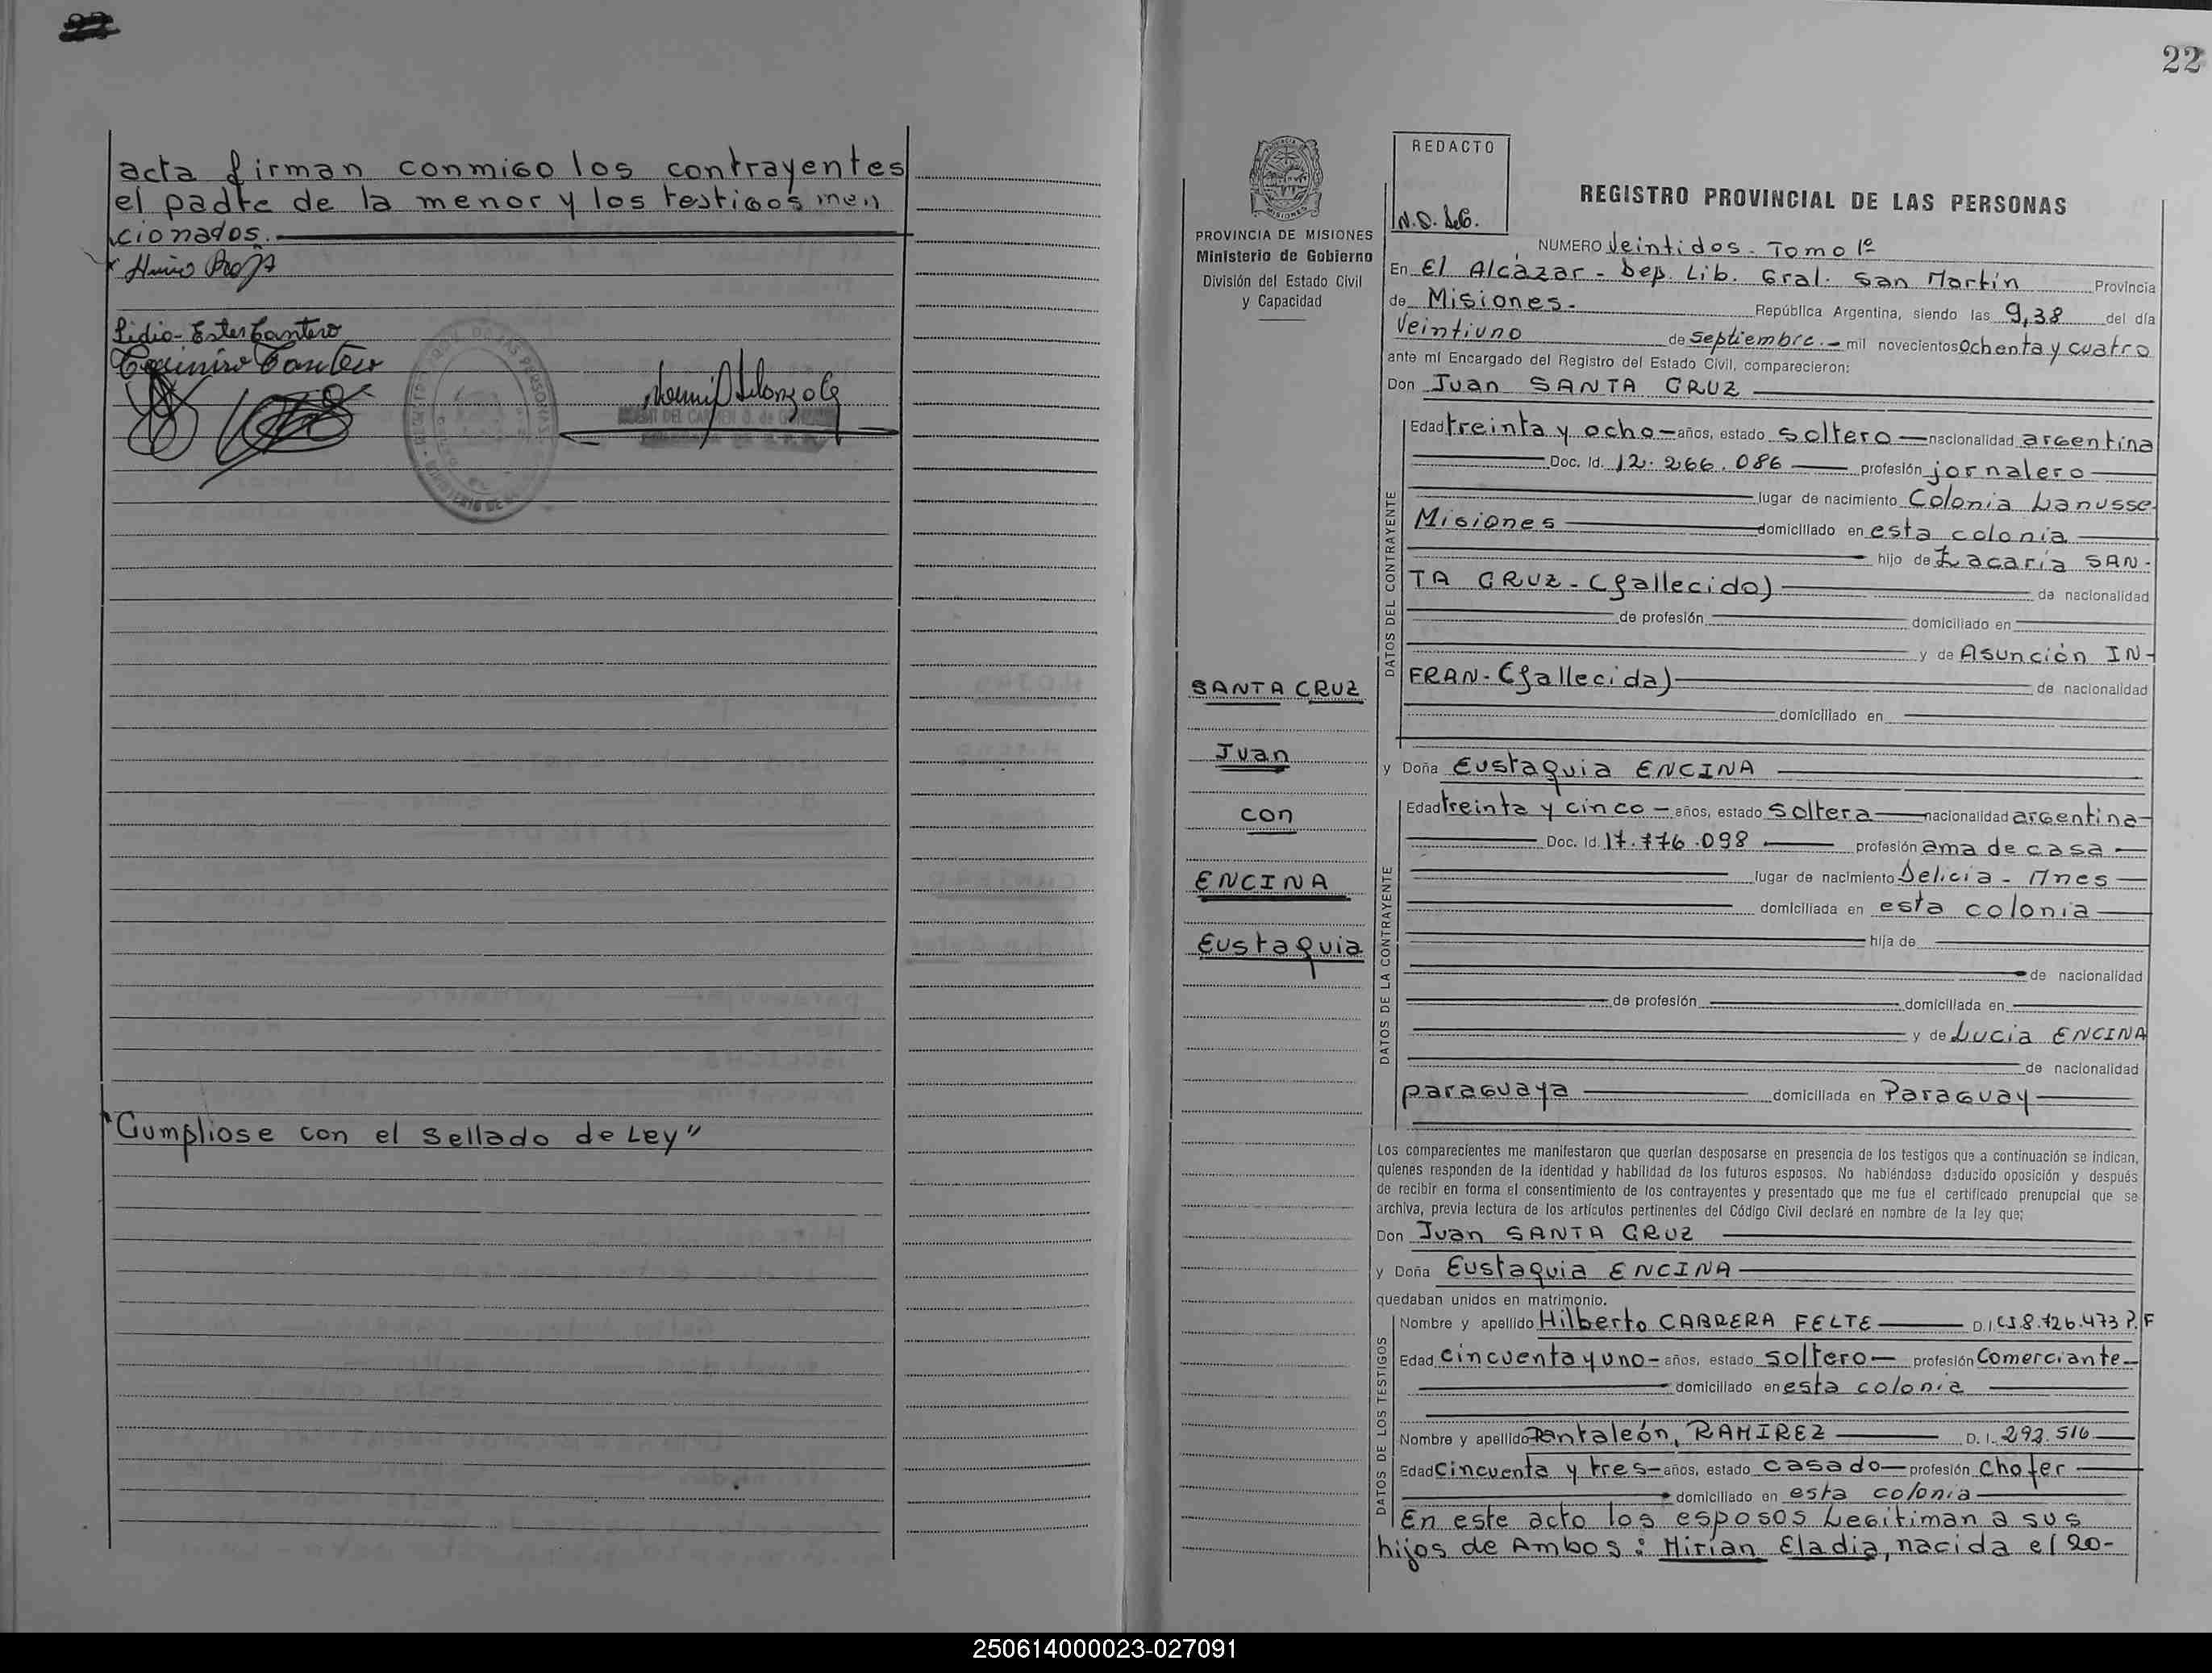 22
acta firman conmigo los contrayentes
el padre de la menor y los testigos men
cionados.
Lidia Ester Cantero
Cantero
"Cumpliose con el sellado de Ley"
22
REDACTO
N.O. de G.
PROVINCIA DE MISIONES
Ministerio de Gobierno
División del Estado Civil
y Capacidad
REGISTRO PROVINCIAL DE LAS PERSONAS
NUMERO Veintidos. Tomo 1º
En El Alcázar - Dep. Lib. Gral. San Martín Provincia
de Misiones.- República Argentina, siendo las 9,38 del día
Veintiuno de Septiembre.- mil novecientos Ochenta y cuatro
ante mí Encargado del Registro del Estado Civil, comparecieron:
Don Juan SANTA CRUZ
DATOS DEL CONTRAYENTE
Edad treinta y ocho - años, estado soltero - nacionalidad argentina
Doc. Id. 12.266.086 profesión jornalero
lugar de nacimiento Colonia Lanusse-
Misiones domiciliado en esta colonia
hijo de Zacaría SAN-
TA CRUZ - (fallecido) de nacionalidad
de profesión domiciliado en
y de Asunción IN-
FRAN - (fallecida) de nacionalidad
domiciliado en
y Doña Eustaquia ENCINA
DATOS DE LA CONTRAYENTE
Edad treinta y cinco - años, estado soltera nacionalidad argentina-
Doc. Id. 17.776.098 profesión ama de casa
lugar de nacimiento Delicia - Mnes
domiciliada en esta colonia
hija de
de nacionalidad
de profesión domiciliada en
y de Lucia ENCINA
de nacionalidad
paraguaya domiciliada en Paraguay
SANTA CRUZ
Juan
con
ENCINA
Eustaquia
Los comparecientes me manifestaron que querían desposarse en presencia de los testigos que a continuación se indican,
quienes responden de la identidad y habilidad de los futuros esposos. No habiéndose deducido oposición y después
de recibir en forma el consentimiento de los contrayentes y presentado que me fue el certificado prenupcial que se
archiva, previa lectura de los artículos pertinentes del Código Civil declaré en nombre de la ley que;
Don Juan SANTA CRUZ
y Doña Eustaquia ENCINA
quedaban unidos en matrimonio.
DATOS DE LOS TESTIGOS
Nombre y apellido Hilberto CABRERA FELTE D.I. CI 8.726.473 P.F
Edad cincuenta y uno - años, estado soltero - profesión Comerciante
domiciliado en esta colonia
Nombre y apellido Pantaleón, RAMIREZ D.I. 292.516
Edad Cincuenta y tres - años, estado casado - profesión Chofer
domiciliado en esta colonia
En este acto los esposos Legitiman a sus
hijos de Ambos: Mirian Eladia, nacida el 20-
250614000023-027091